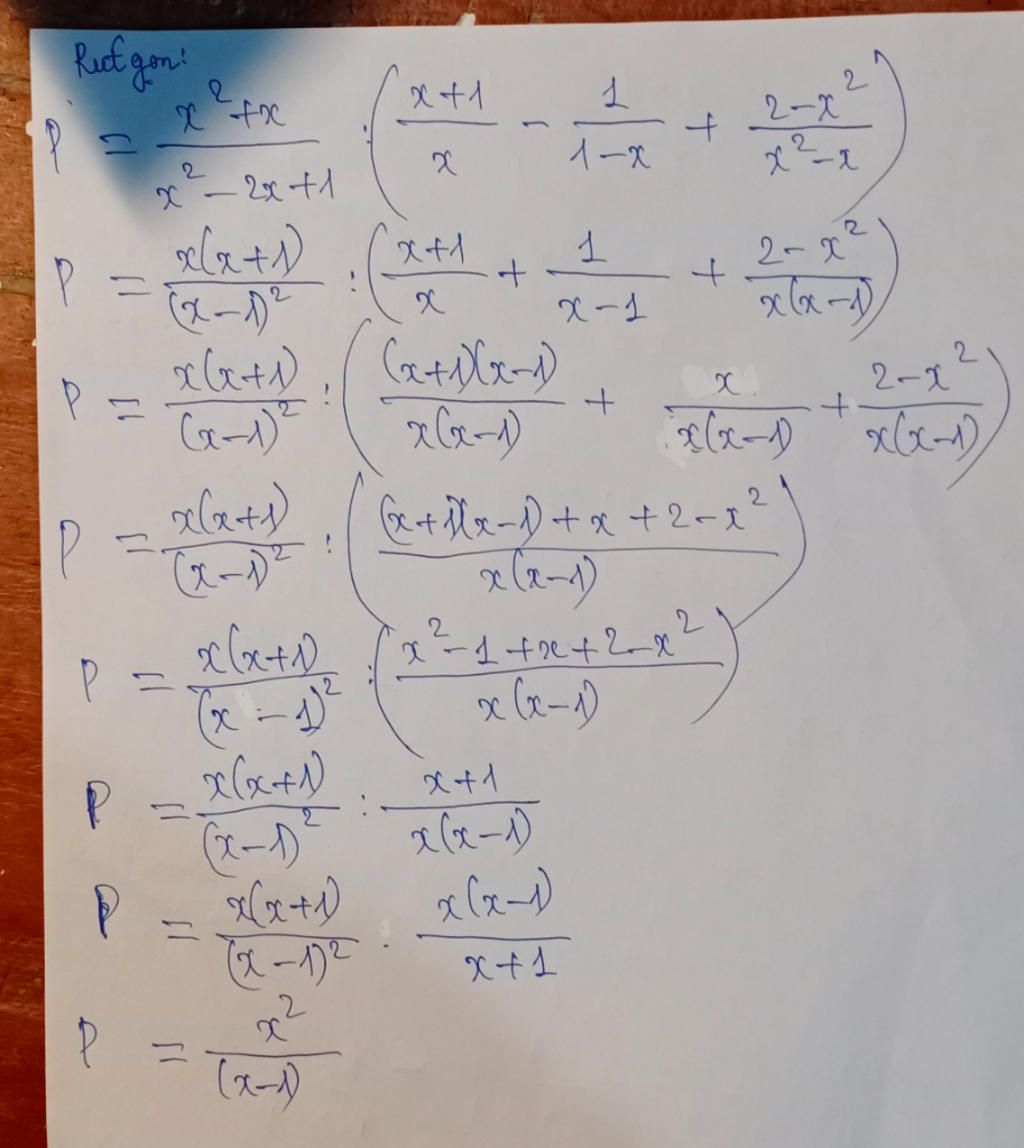 Rút gọn:
P = \frac{x^2+x}{x^2-2x+1} : \left(\frac{x+1}{x} - \frac{1}{1-x} + \frac{2-x^2}{x^2-x}\right)
P = \frac{x(x+1)}{(x-1)^2} : \left(\frac{x+1}{x} + \frac{1}{x-1} + \frac{2-x^2}{x(x-1)}\right)
P = \frac{x(x+1)}{(x-1)^2} : \left(\frac{(x+1)(x-1)}{x(x-1)} + \frac{x}{x(x-1)} + \frac{2-x^2}{x(x-1)}\right)
P = \frac{x(x+1)}{(x-1)^2} : \left(\frac{(x+1)(x-1)+x+2-x^2}{x(x-1)}\right)
P = \frac{x(x+1)}{(x-1)^2} : \left(\frac{x^2-1+x+2-x^2}{x(x-1)}\right)
P = \frac{x(x+1)}{(x-1)^2} : \frac{x+1}{x(x-1)}
P = \frac{x(x+1)}{(x-1)^2} . \frac{x(x-1)}{x+1}
P = \frac{x^2}{(x-1)}